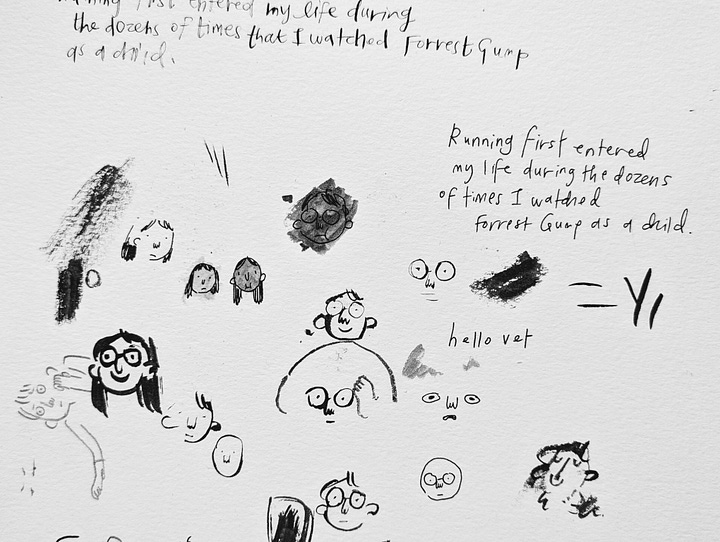 first entered my life during
the dozens of times that I watched Forrest Gump
as a child.
Running first entered
my life during the dozens
of times I watched
Forrest Gump as a child.
hello vet